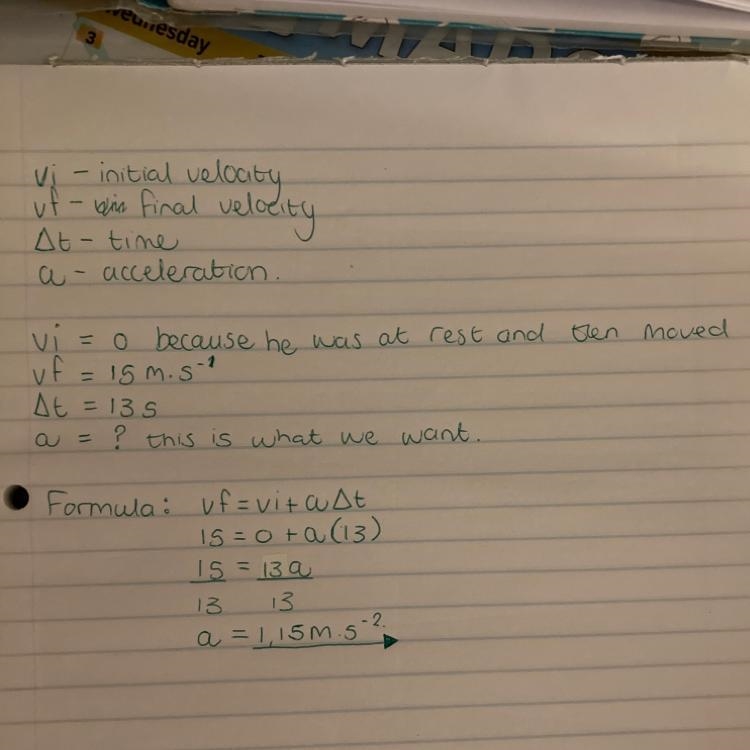 3 Wednesday
vi - initial velocity
vf - final velocity
Δt - time
a - acceleration.
vi = 0 because he was at rest and then moved
vf = 15 m.s⁻¹
Δt = 13 s
a = ? this is what we want.
Formula: vf = vi + aΔt
15 = 0 + a(13)
15 = 13a
13 13
a = 1,15m.s⁻².